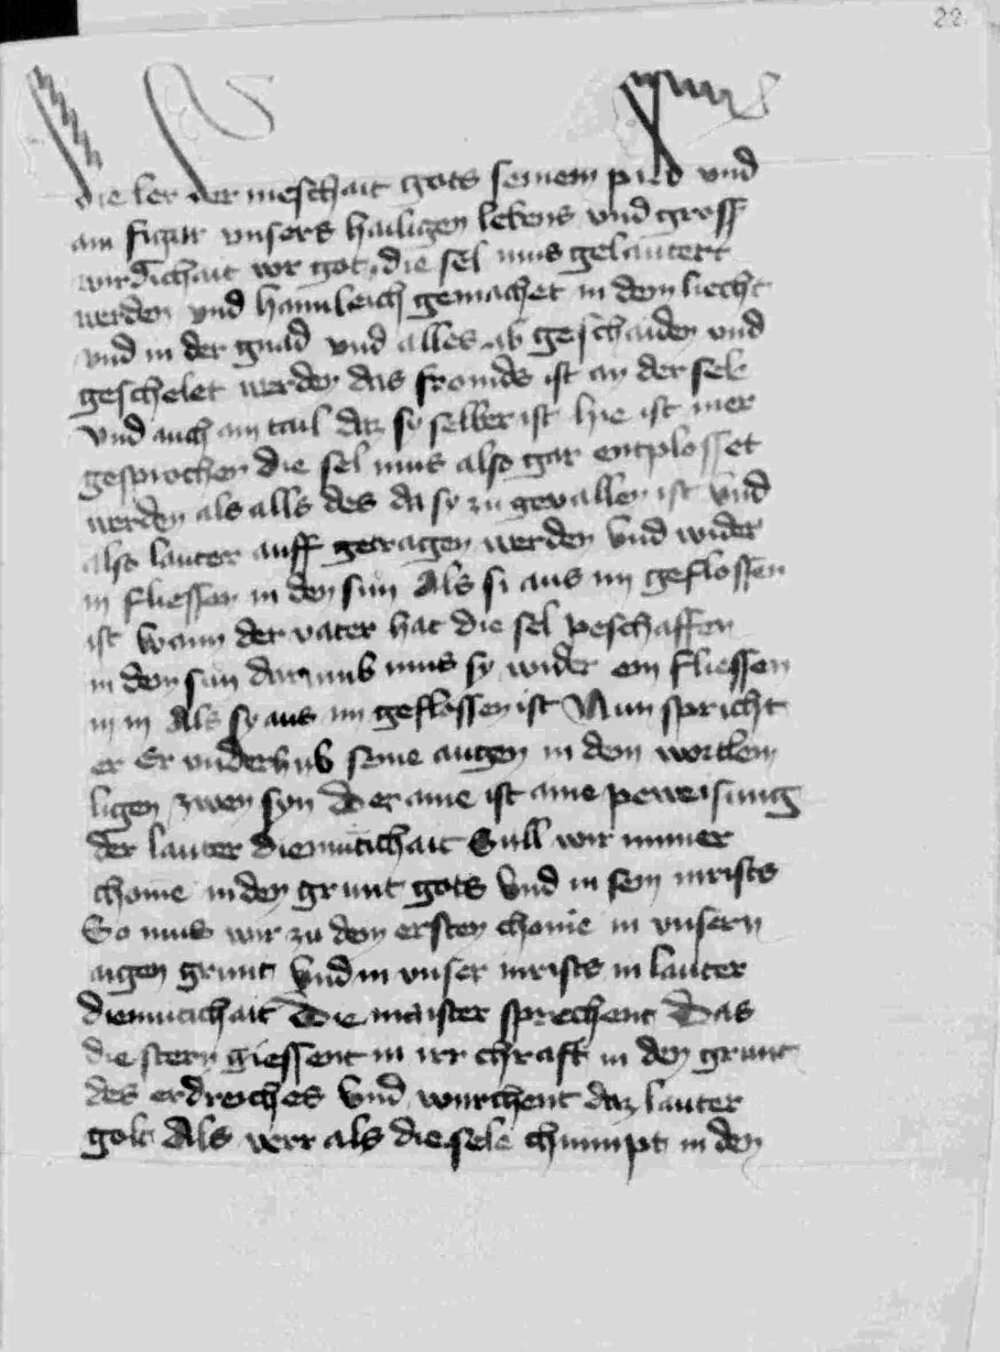 22
die ler der meschait gots seinem pild vnd
ain figur vnsers hailigen lebens vnd gross
wirdichait vor got die sel mus gelautert
werden vnd haimleich gemachet in dem liecht
vnd in der gnad vnd alles ab geschaiden vnd
geschelet werden das fromds ist an der sele
vnd auch ain tail daz sy selber ist hie ist mer
gesprochen die sel mus also gar entplosset
werden als alls des da sy zu gevallen ist vnd
also lauter auff getragen werden vnd wider
in fliessen in den sun Als si aus im geflossen
ist wann der vater hat die sel peschaffen
in dem sun darumb mus sy wider ein fliessen
in in Als sy aus im geflossen ist Nun spricht
er Er vnderhub seine augen in dem wortlein
ligen zwen syn Der aine ist aine peweisung
der lauter diemutichait Sull wir immer
chome in den grunt gots vnd in sein inrists
So mus wir zu dem ersten chome in vnsern
aigen grunt vnd in vnser inrists in lauter
diemutichait Die maister sprechent Das
die stern giessent in irr chraft in den grunt
des erdreiches vnd wurchent daz lauter
golt Als verr als die sele chumpt in den